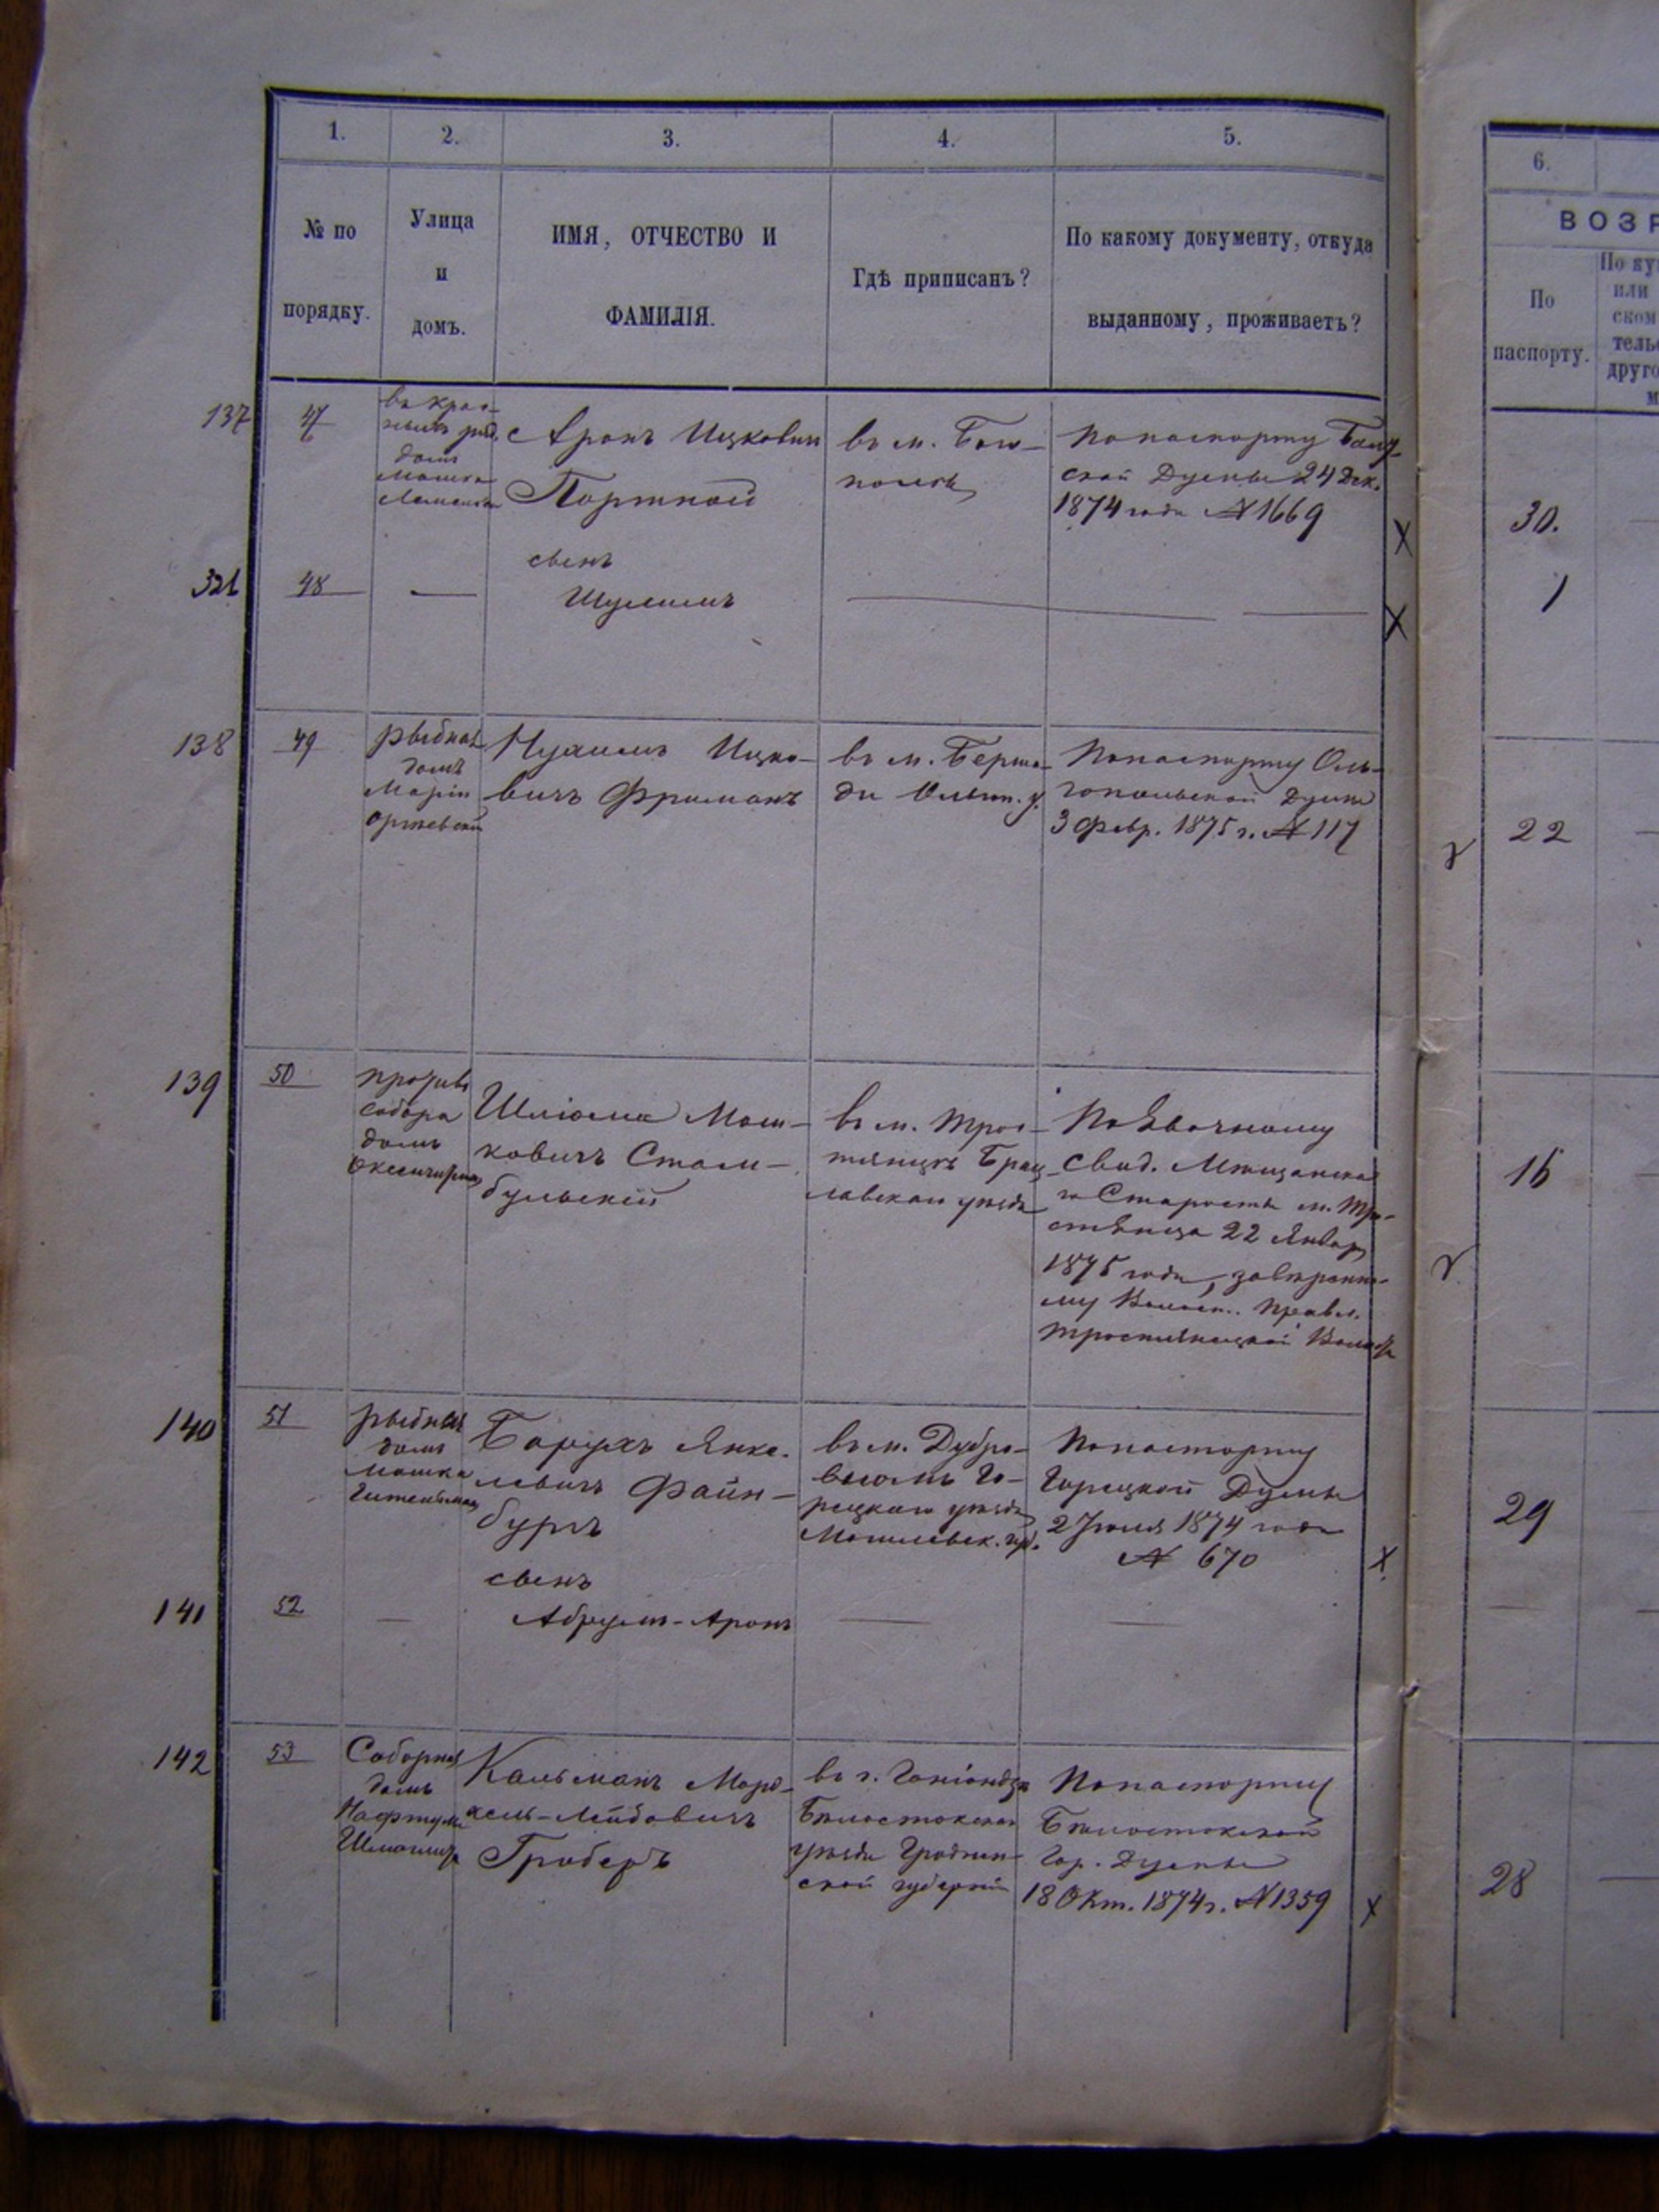 1.
2.
3.
4.
5.
6.
№ по
порядку.
Улица
и
домъ.
ИМЯ, ОТЧЕСТВО И
ФАМИЛІЯ.
Гдѣ приписанъ?
По какому документу, откуда
выданному, проживаетъ?
ВОЗР
По
паспорту.
По ку
или
ском
тель
друго
м
137
47
домъ
Мошка
Аронъ Ицковичъ
Портной
въ м.
По паспорту
ской Думы 24 Дек.
1874 года № 1669
X
30.
48
—
сынъ
Шулимъ
X
1
138
49
Рыбная
домъ
Маріи
Оржевской
Ицко-
вичъ Фриманъ
въ м. Берша-
ди Ольгоп. у.
По паспорту Оль-
гопольской Думы
3 Февр. 1875 г. № 117
22
139
50
противъ
собора
домъ
Шліома Мош-
ковичъ Стам-
бульскій
въ м. Трос-
тянцѣ Брац-
лавскаго уѣзда
По Явочному
Свид. Мѣщанска
го Старосты м. Тро-
стянца 22 Января
1875 года, завѣренно-
му Волостн. Правл.
Тростянецкой Волости
16
140
51
Рыбная
домъ
Мошка
Борухъ Янке-
левичъ Файн-
бургъ
въ м. Дубро-
вномъ Го-
рецкаго уѣзда
Могилевск. губ.
По паспорту
Горецкой Думы
2 Іюля 1874 года
№ 670
X
29
141
52
—
сынъ
Абрумъ-Аронъ
—
—
142
53
Соборная
домъ
Нафтулы
Кальманъ Морд-
хель-Лейбовичъ
Гроберъ
въ г. Гоніондзѣ
Бѣлостокскаго
уѣзда Гроднен-
ской губерніи
По паспорту
Бѣлостокской
Гор. Думы
18 Окт. 1874 г. № 1359
X
28